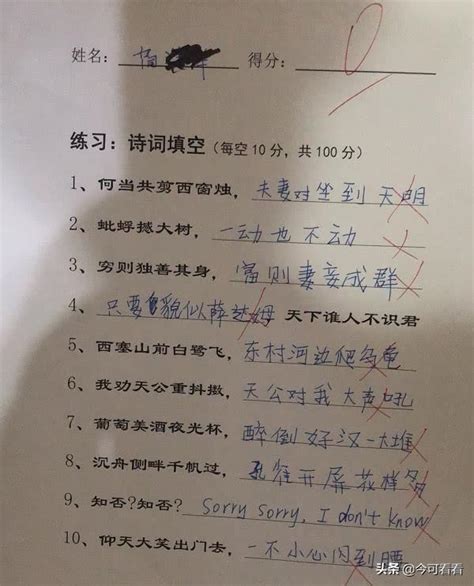 姓名：杨 得分：0
练习：诗词填空（每空10分，共100分）
1、何当共剪西窗烛，夫妻对坐到天明
2、蚍蜉撼大树，一动也不动
3、穷则独善其身，富则妻妾成群
4、只要貌似薛达姆 天下谁人不识君
5、西塞山前白鹭飞，东村河边爬乌龟
6、我劝天公重抖擞，天公对我大声吼
7、葡萄美酒夜光杯，醉倒好汉一大堆
8、沉舟侧畔千帆过，孔雀开屏花样多
9、知否?知否? Sorry sorry, I don't know
10、仰天大笑出门去，一不小心闪到腰
头条 @今可看看